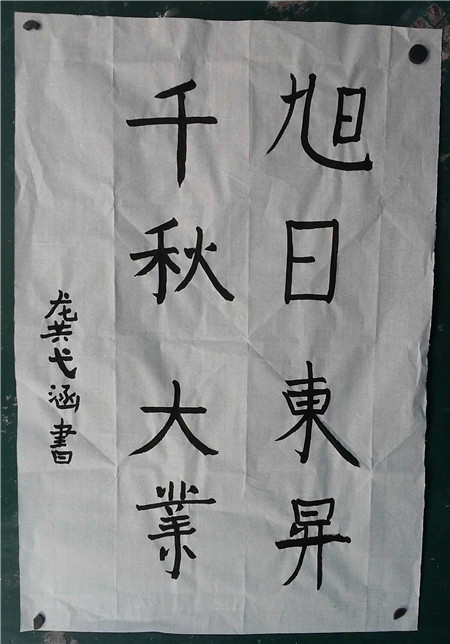 旭日東昇
千秋大業
龚弋涵書